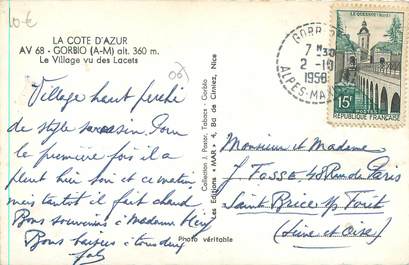 10€
LA COTE D'AZUR
AV 68 - GORBIO (A-M) alt. 360 m.
Le Village vu des Lacets
(06)
Village haut perché
de style sarrasin. Pour
la première fois il a
plut hier soir et ce matin
mais tantôt il fait chaud
Bons souvenirs à Madame
Bons baisers à tous deux
Collection J. Pastor, Tabacs - Gorbio
Les Editions "MAR" 4, Bd de Cimiez, Nice
Photo véritable
GORBIO
7 H 30
2 - 10
1958
ALPES-MAR
LE QUESNOY (NORD)
15F
POSTES
REPUBLIQUE FRANÇAISE
Monsieur et Madame
J. FOSSE 48 Rue de Paris
Saint Brice s/s Forêt
(Seine et Oise)